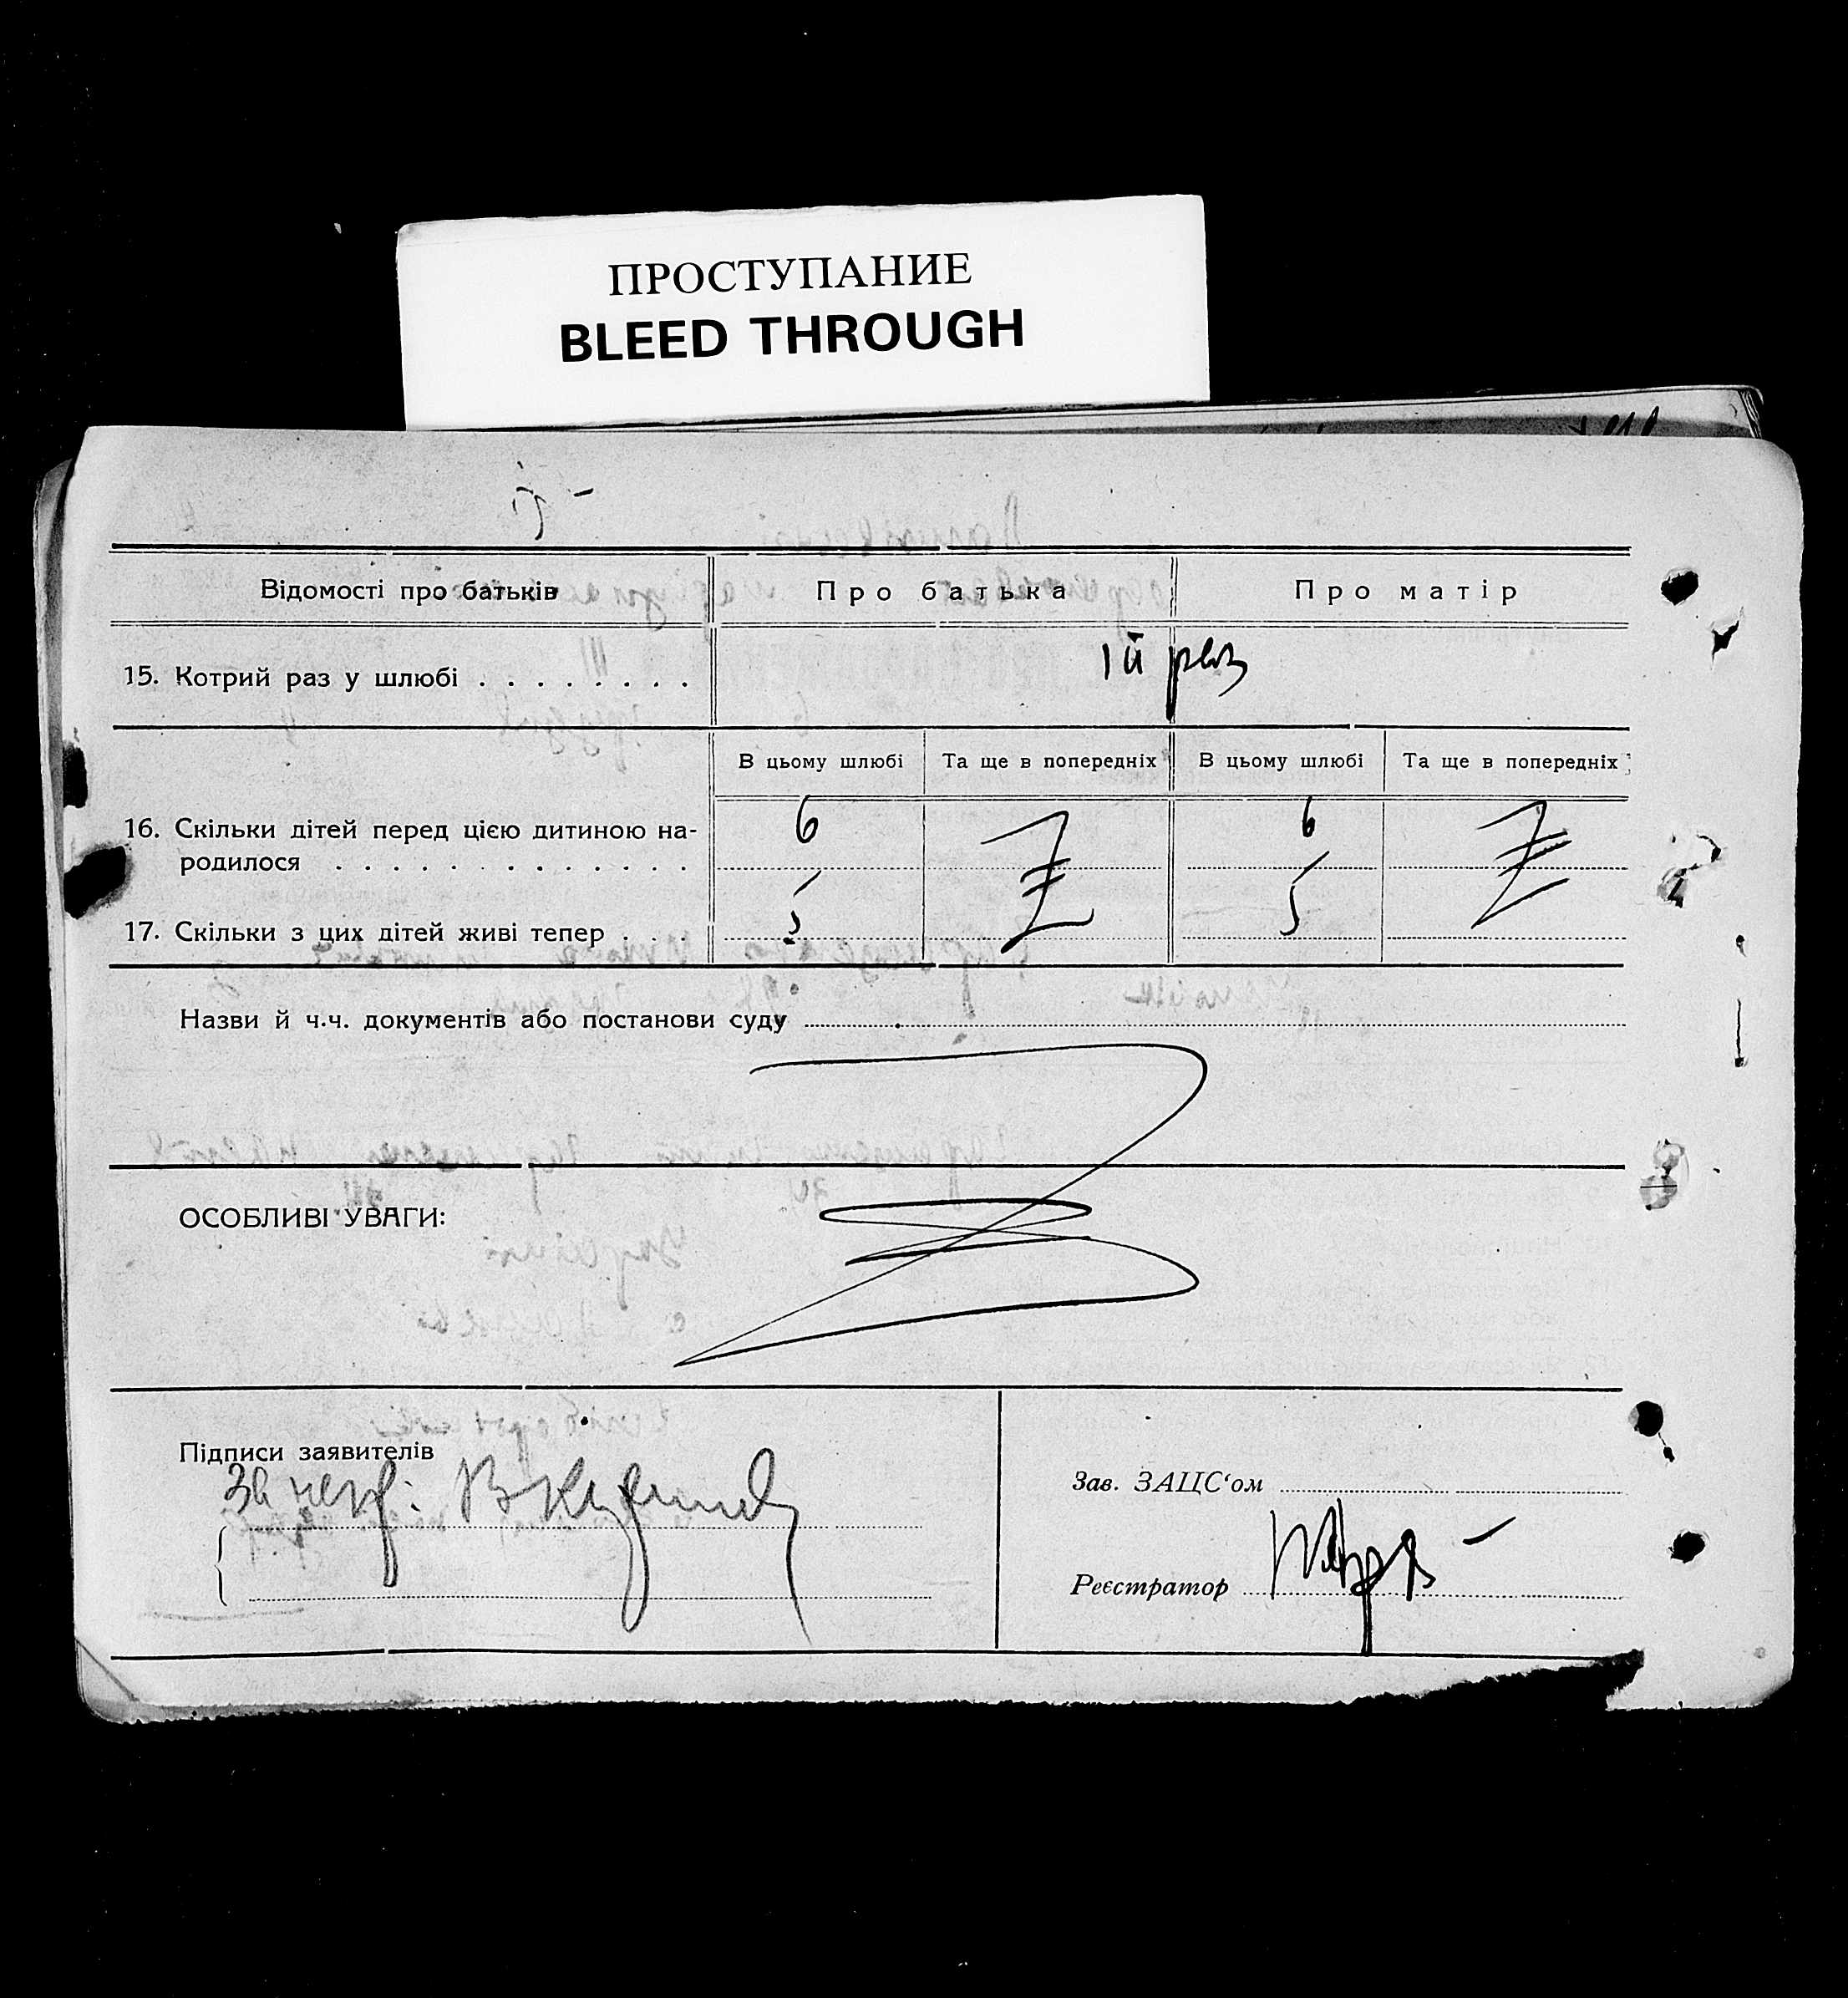 ПРОСТУПАНИЕ
BLEED THROUGH
Відомості про батьків
Про батька
Про матір
15. Котрий раз у шлюбі . . . . . . . .
1й раз
В цьому шлюбі
Та ще в попередніх
В цьому шлюбі
Та ще в попередніх
16. Скільки дітей перед цією дитиною на-
родилося . . . . . . . . . . . . .
6
6
17. Скільки з цих дітей живі тепер . . .
5
5
Назви й ч.ч. документів або постанови суду
ОСОБЛИВІ УВАГИ:
Підписи заявителів
За
Зав. ЗАЦС‘ом
Реєстратор